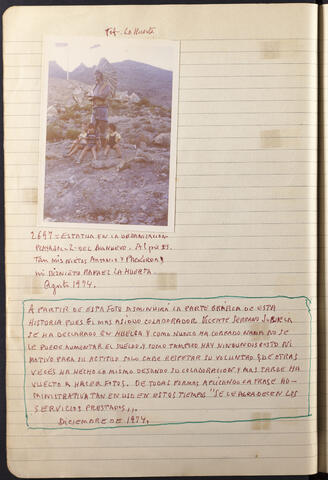 Fot. La Huerta
2697 = ESTATUA EN LA ORGANIZACIÓN
PLAYASOL-2- DEL ALANUEVO. Al pie ES-
TAN MIS NIETOS ANTONIO Y
MI BISNIETO RAFAEL LA HUERTA.
Agosto 1974.
A PARTIR DE ESTA FOTO DISMINUIRÁ LA PARTE GRÁFICA DE ESTA
HISTORIA PUES EL MAS ASIDUO COLABORADOR VICENTE SERRANO
SE HA DECLARADO EN HUELGA Y COMO NUNCA HA COBRADO NADA NO SE
LE PUEDE AUMENTAR EL SUELDO Y COMO TAMPOCO HAY NINGUN DISGUSTO NI
MOTIVO PARA SU ACTITUD SOLO CABE RESPETAR SU VOLUNTAD QUE OTRAS
VECES HA HECHO LO MISMO DEJANDO SU COLABORACION Y MAS TARDE HA
VUELTO A HACER FOTOS. DE TODAS FORMAS APLICANDO LA FRASE AD-
MINISTRATIVA TAN EN USO EN ESTOS TIEMPOS "SE LE AGRADECEN LOS
SERVICIOS PRESTADOS,,.
DICIEMBRE DE 1974.